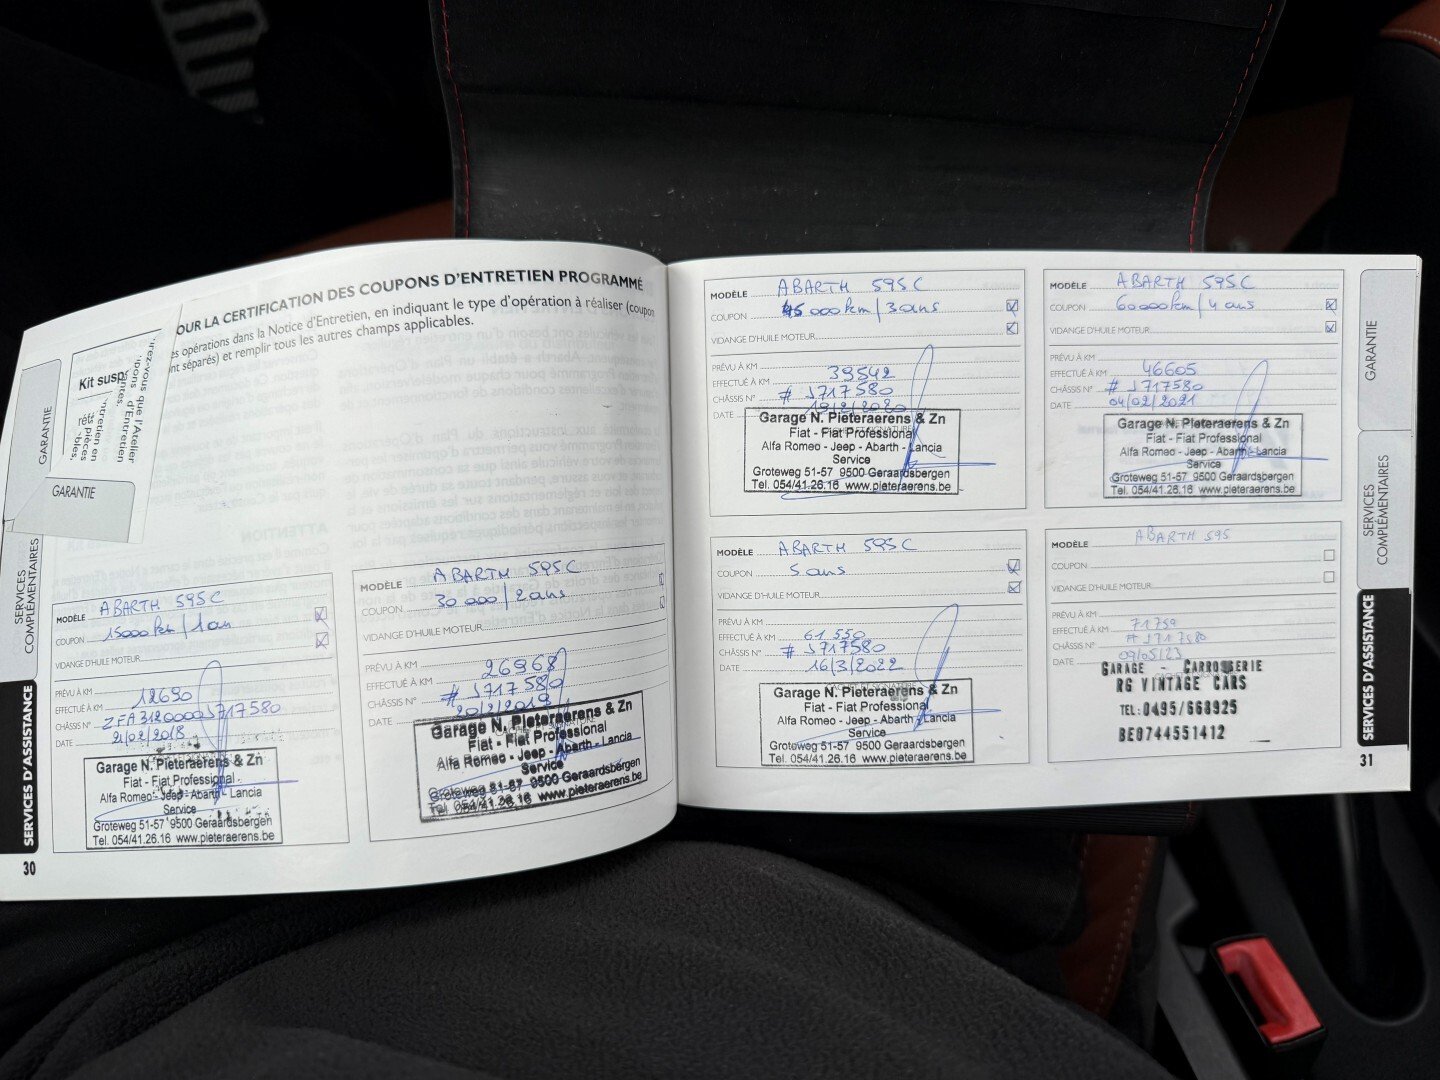 OUR LA CERTIFICATION DES COUPONS D'ENTRETIEN PROGRAMMÉ
es opérations dans la Notice d'Entretien, en indiquant le type d'opération à réaliser (coupon
nt séparés) et remplir tous les autres champs applicables.
Kit susp
urez-vous que l'Atelier
upons d'Entretien
GARANTIE
GARANTIE
SERVICES
COMPLÉMENTAIRES
SERVICES D'ASSISTANCE
MODÈLE ABARTH 595C
COUPON 15000km/1an
VIDANGE D'HUILE MOTEUR
PRÉVU À KM
EFFECTUÉ À KM 12690
CHÂSSIS N° ZFA3120000J717580
DATE 21/02/2018
Garage N. Pieteraerens & Zn
Fiat - Fiat Professional
Alfa Romeo - Jeep - Abarth - Lancia
Service
Groteweg 51-57 9500 Geraardsbergen
Tel. 054/41.26.16 www.pieteraerens.be
30
MODÈLE ABARTH 595C
COUPON 30 000/2ans
VIDANGE D'HUILE MOTEUR
PRÉVU À KM
EFFECTUÉ À KM 26968
CHÂSSIS N° # J717580
DATE 20/2/2019
Garage N. Pieteraerens & Zn
Fiat - Fiat Professional
Alfa Romeo - Jeep - Abarth - Lancia
Service
Groteweg 51-57 9500 Geraardsbergen
Tel. 054/41.26.16 www.pieteraerens.be
MODÈLE ABARTH 595C
COUPON 45000km/3ans
VIDANGE D'HUILE MOTEUR
PRÉVU À KM
EFFECTUÉ À KM 39542
CHÂSSIS N° # J717580
DATE 19/2/2020
Garage N. Pieteraerens & Zn
Fiat - Fiat Professional
Alfa Romeo - Jeep - Abarth - Lancia
Service
Groteweg 51-57 9500 Geraardsbergen
Tel. 054/41.26.16 www.pieteraerens.be
MODÈLE ABARTH 595C
COUPON 60000km/4ans
VIDANGE D'HUILE MOTEUR
PRÉVU À KM
EFFECTUÉ À KM 46605
CHÂSSIS N° # J717580
DATE 04/02/2021
Garage N. Pieteraerens & Zn
Fiat - Fiat Professional
Alfa Romeo - Jeep - Abarth - Lancia
Service
Groteweg 51-57 9500 Geraardsbergen
Tel. 054/41.26.16 www.pieteraerens.be
MODÈLE ABARTH 595C
COUPON 5ans
VIDANGE D'HUILE MOTEUR
PRÉVU À KM
EFFECTUÉ À KM 61 550
CHÂSSIS N° # J717580
DATE 16/3/2022
Garage N. Pieteraerens & Zn
Fiat - Fiat Professional
Alfa Romeo - Jeep - Abarth - Lancia
Service
Groteweg 51-57 9500 Geraardsbergen
Tel. 054/41.26.16 www.pieteraerens.be
MODÈLE ABARTH 595
COUPON
VIDANGE D'HUILE MOTEUR
PRÉVU À KM
EFFECTUÉ À KM 71759
CHÂSSIS N° # J717580
DATE 09/05/23
GARAGE - CARROSSERIE
RG VINTAGE CARS
TEL: 0495/668925
BE0744551412
GARANTIE
SERVICES
COMPLÉMENTAIRES
SERVICES D'ASSISTANCE
31